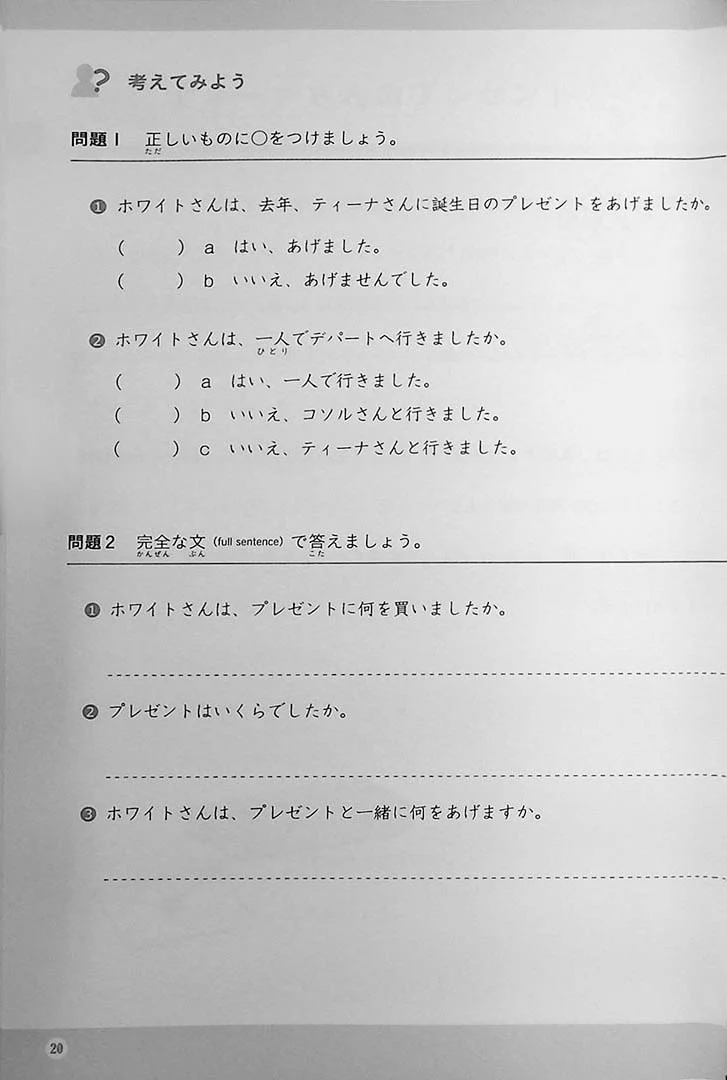 考えてみよう
問題1 正しいものに○をつけましょう。
ただ
❶ ホワイトさんは、去年、ティーナさんに誕生日のプレゼントをあげましたか。
( ) a はい、あげました。
( ) b いいえ、あげませんでした。
❷ ホワイトさんは、一人でデパートへ行きましたか。
ひとり
( ) a はい、一人で行きました。
( ) b いいえ、コソルさんと行きました。
( ) c いいえ、ティーナさんと行きました。
問題2 完全な文(full sentence)で答えましょう。
かんぜん ぶん こた
❶ ホワイトさんは、プレゼントに何を買いましたか。
❷ プレゼントはいくらでしたか。
❸ ホワイトさんは、プレゼントと一緒に何をあげますか。
20